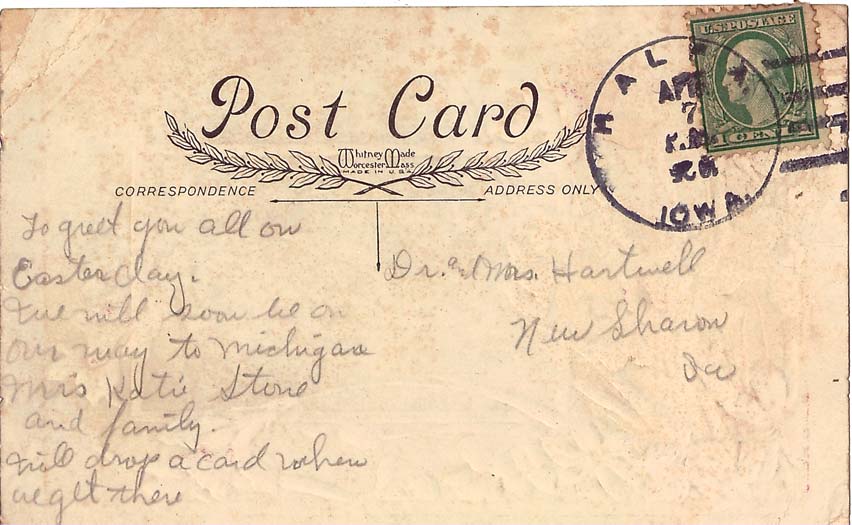 U.S. POSTAGE
Post Card
Whitney Made
Worcester Mass.
MADE IN U.S.A.
APR
7
IOWA.
CORRESPONDENCE
ADDRESS ONLY
To greet you all on
Easter day.
We will soon be on
our way to Michigan
Mrs Katie Stone
and family.
Will drop a card when
we get there
Dr. and Mrs. Hartwell
New Sharon
Ia